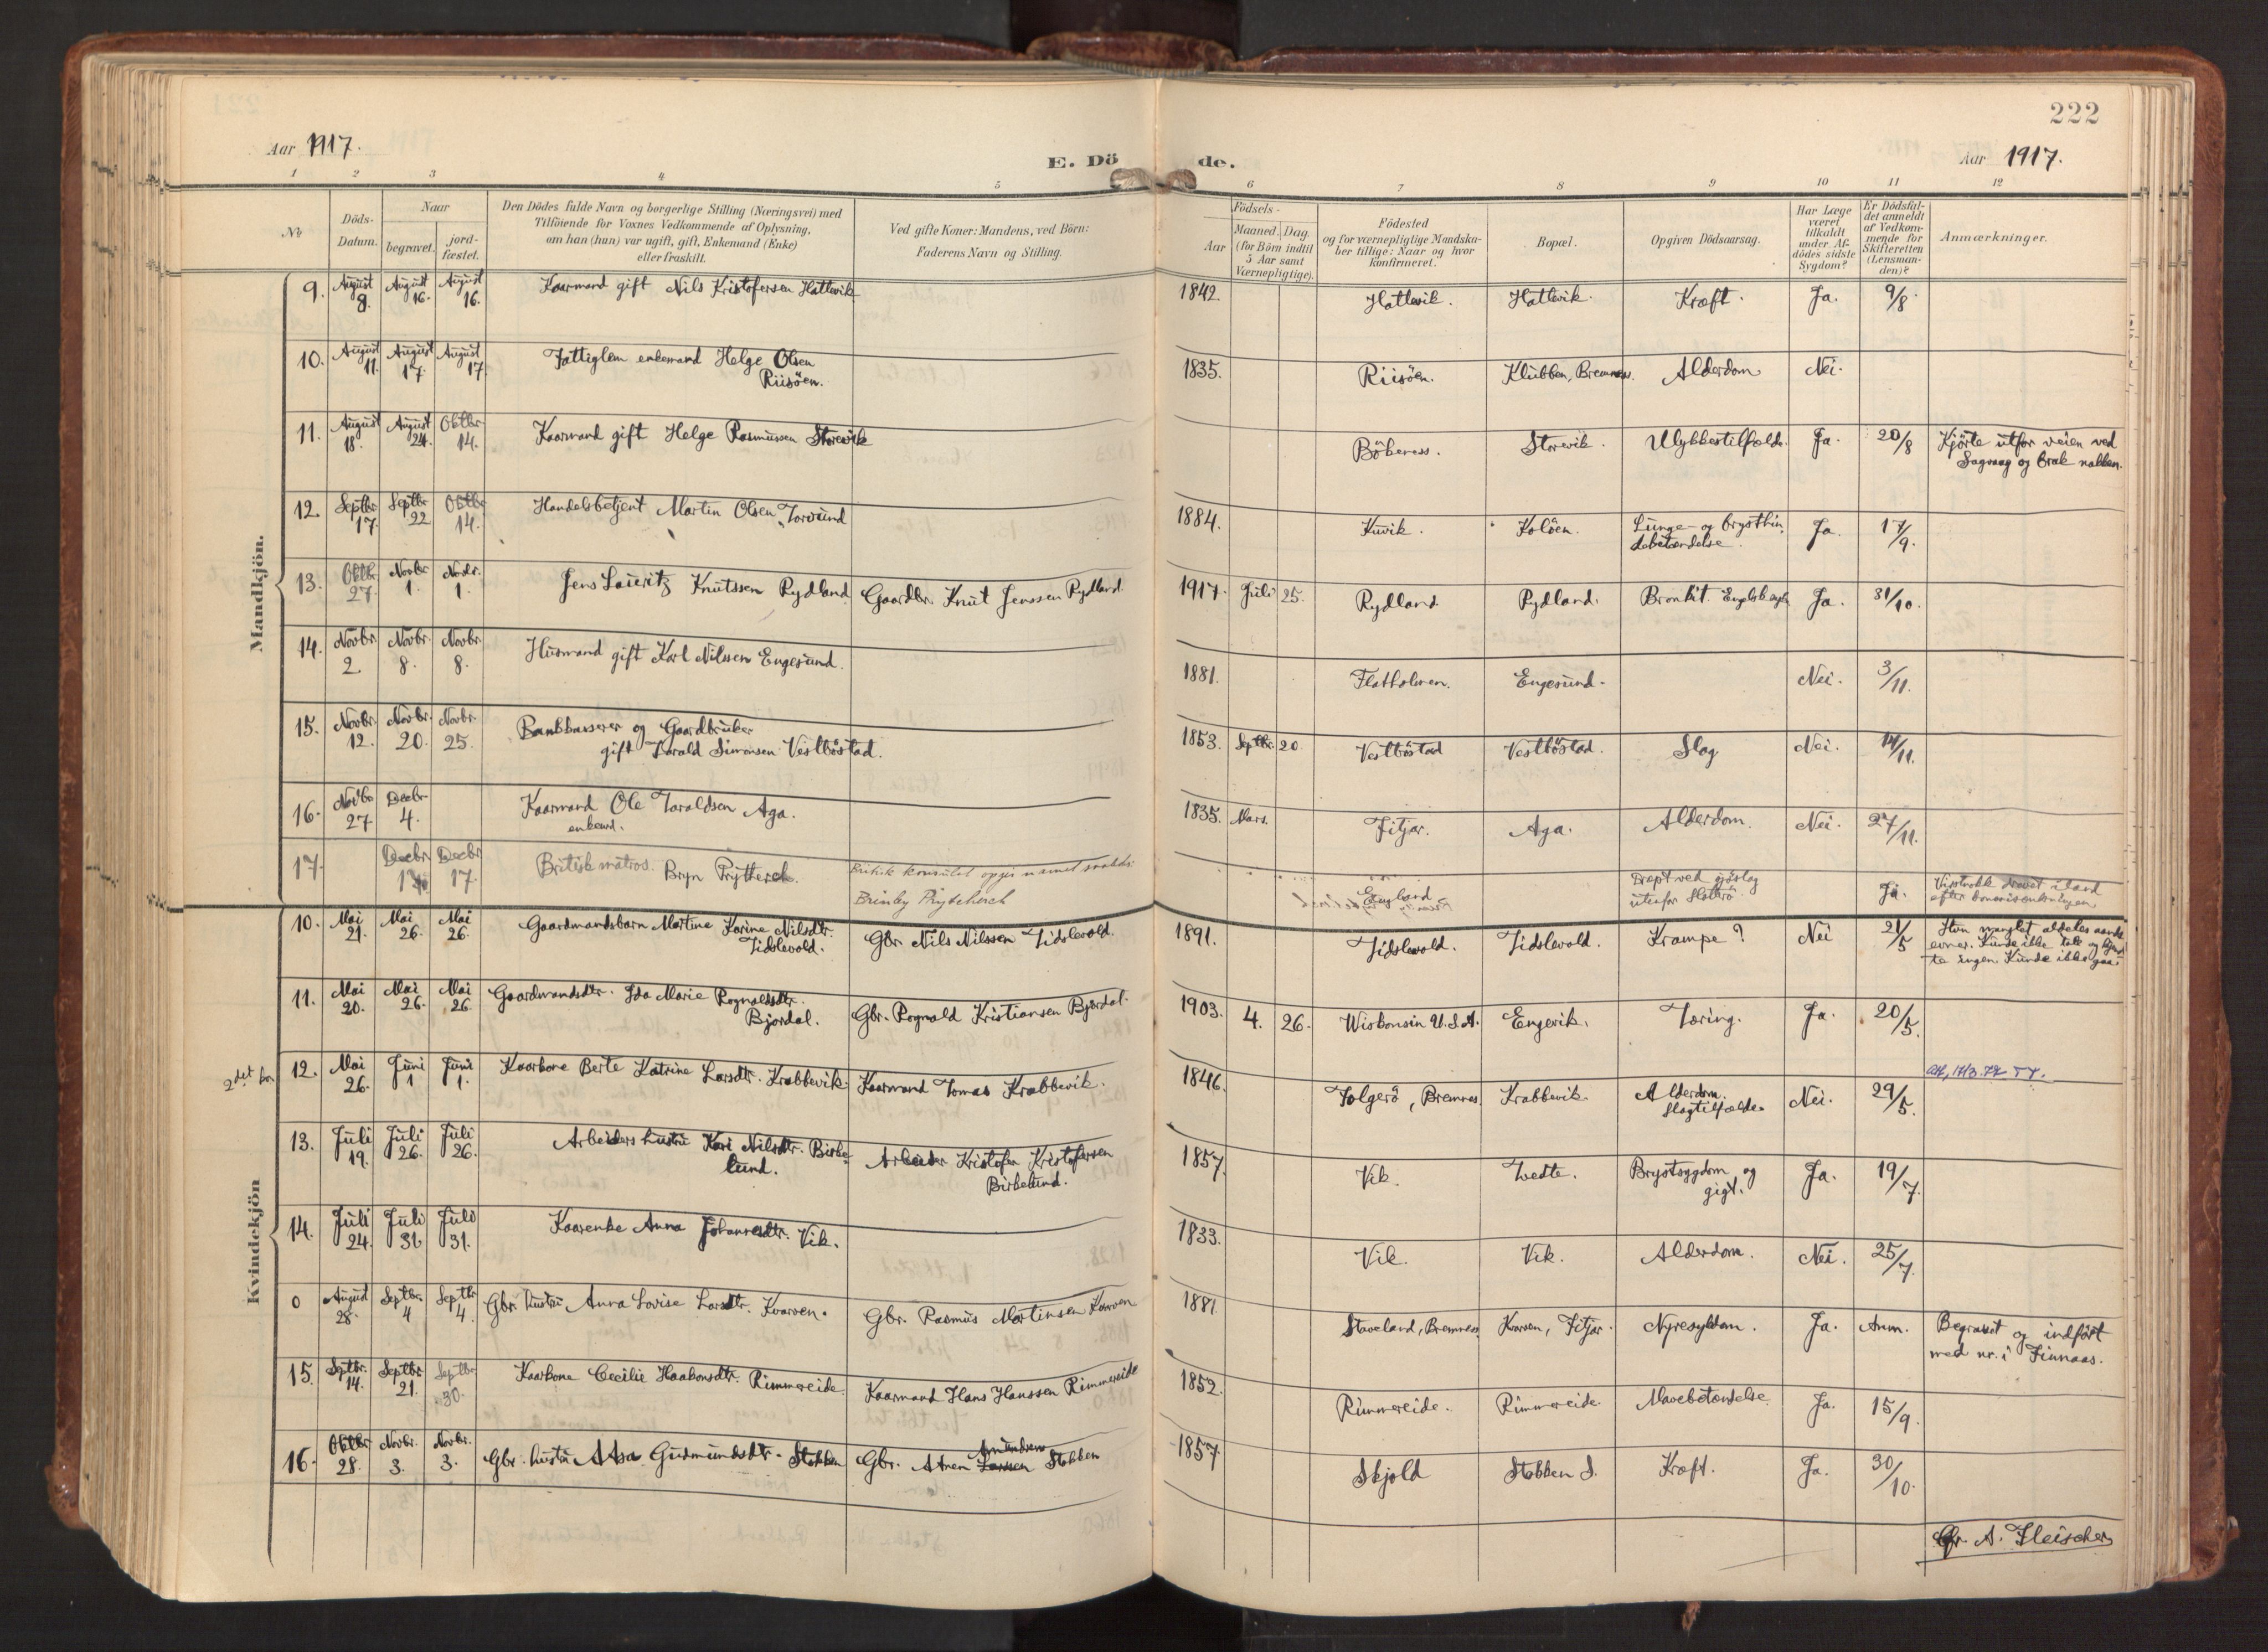 222
Aar 1917.
E. Dö de.
Aar 1917.
1 2 3 4 5 6 7 8 9 10 11 12
No
Döds-Datum.
Naar
begravet.
jord-fæstet.
Den Dödes fulde Navn og borgerlige Stilling (Næringsvei) med
Tilföiende for Voxnes Vedkommende af Oplysning,
om han (hun) var ugift, gift, Enkemand (Enke)
eller fraskilt.
Ved gifte Koner: Mandens, ved Börn:
Faderens Navn og Stilling.
Födsels-
Aar
Maaned. Dag.
(for Börn indtil
5 Aar samt
Værnepligtige).
Födested
og for værnepligtige Mandska-
ber tillige: Naar og hvor
konfirmeret.
Bopæl.
Opgiven Dödsaarsag.
Har Læge
været
tilkaldt
under Af-
dödes sidste
Sygdom?
Er Dödsfal-
det anmeldt
af Vedkom-
mende for
Skifteretten
(Lensman-
den)?
Anmærkninger.
Mandkjön.
9. August 9. August 16. August 16. Kaarmand gift Nils Kristofersen Hatlevik 1842. Hatlevik. Hatlevik. Kræft. Ja. 9/8
10. August 11. August 17. August 17. Fattiglem enkemand Helge Olsen
Riisöen. 1835. Riisöen. Klubben, Bremnes. Alderdom Nei.
11. August 18. August 24. Oktbr. 14. Kaarmand gift Helge Rasmussen Storevik Bökeness. Storevik. Ulykkestilfælde. Ja. 20/8 Kjörte utfor veien ved
Sagvaag og brak nakken.
12. Septbr. 17. Septbr. 22 Oktbr. 14. Handelsbetjent Martin Olsen Torsund 1884. Kuvik. Kolöen. Lunge- og brysthin-
debetændelse. Ja. 17/9.
13. Oktbr. 27. Novbr. 1. Novbr. 1. Jens Lauritz Knutssen Rydland Gaardbr. Knut Jenssen Rydland. 1917. Juli 25. Rydland Rydland. Bronkit. Ja. 31/10.
14. Novbr. 2. Novbr. 8. Novbr. 8. Husmand gift Karl Nilssen Engesund. 1881. Flatholmen. Engesund. Nei. 3/11.
15. Novbr. 12. Novbr. 20. Novbr. 25. Bankkasserer og Gaardbruker
gift Harald Simonsen Vestböstad. 1853. Septbr. 20. Vestböstad Vestböstad. Slag Nei. 14/11.
16. Novbr. 27. Decbr. 4. Kaarmand Ole Taraldsen Aga.
enkemd. 1835. Mars. Fitjar. Aga. Alderdom. Nei. 27/11.
17. Decbr. Decbr. 17. Britisk matros. Bryn Prytherch. Britisk konsulat opgir navnet saaledes
England Dræpt ved sjöslag
utenfor Ja.
Kvindekjön
10. Mai 21. Mai 26. Mai 26. Gaardmandsbarn Martine Karine Nilsdtr.
Tidslevold. Gbr. Nils Nilssen Tidslevold. 1891. Tidslevold. Tidslevold. Krampe? Nei 21/5 Hun manglet aldeles aands-
evner. Kunde ikke tale og kjend-
te ingen. Kunde ikke gaa.
11. Mai 20. Mai 26. Mai 26. Gaardmandsdtr. Ida Marie Rognaldsdtr.
Björdal. Gbr. Rognald Kristiansen Björdal. 1903. 4. 26. Wiskonsin U.S.A. Engevik. Tæring. Ja. 20/5.
12. Mai 26. Juni 1. Juni 1. Kaarkone Berte Katrine Larsdtr. Krabbevik. Kaarmand Tomas Krabbevik. 1846. Folgerö, Bremnes. Krabbevik. Alderdom.
Slagtilfælde. Nei. 29/5.
13. Juli 19. Juli 26. Juli 26. Arbeiders hustru Kari Nilsdtr. Birke-
lund. Arbeider Kristofer Kristofersen
Birkelund. 1857. Vik. Tvedte. Brystsygdom og
gigt. Ja. 19/7.
14. Juli 24. Juli 31. Juli 31. Kaarenke Anna Johannesdtr. Vik. 1833. Vik. Vik. Alderdom. Nei. 25/7.
0 August 28. Septbr. 4 Septbr. 4. Gbr. hustru Anna Lovise Larsdtr. Kvarven. Gbr. Rasmus Martinsen Kvarven 1881. Staveland, Bremnes. Kvarven, Fitjar. Nyresykdom. Ja. Anm. Begravet og indfört
med nr. i Finnaas.
15. Septbr. 14. Septbr. 21. Septbr. 30. Kaarkone Cecilie Haakonsdtr. Rimmereide. Kaarmand Hans Hanssen Rimmereide 1852. Rimmereide. Rimmereide. Mavebetændelse. Ja. 15/9.
16. Oktbr. 28. Novbr. 3. Novbr. 3. Gbr. hustru Asa Gudmundsdtr. Stokken Gbr. Larssen Stokken 1857. Skjold Stokken S. Kræft. Ja. 30/10.
Chr. A. Fleischer